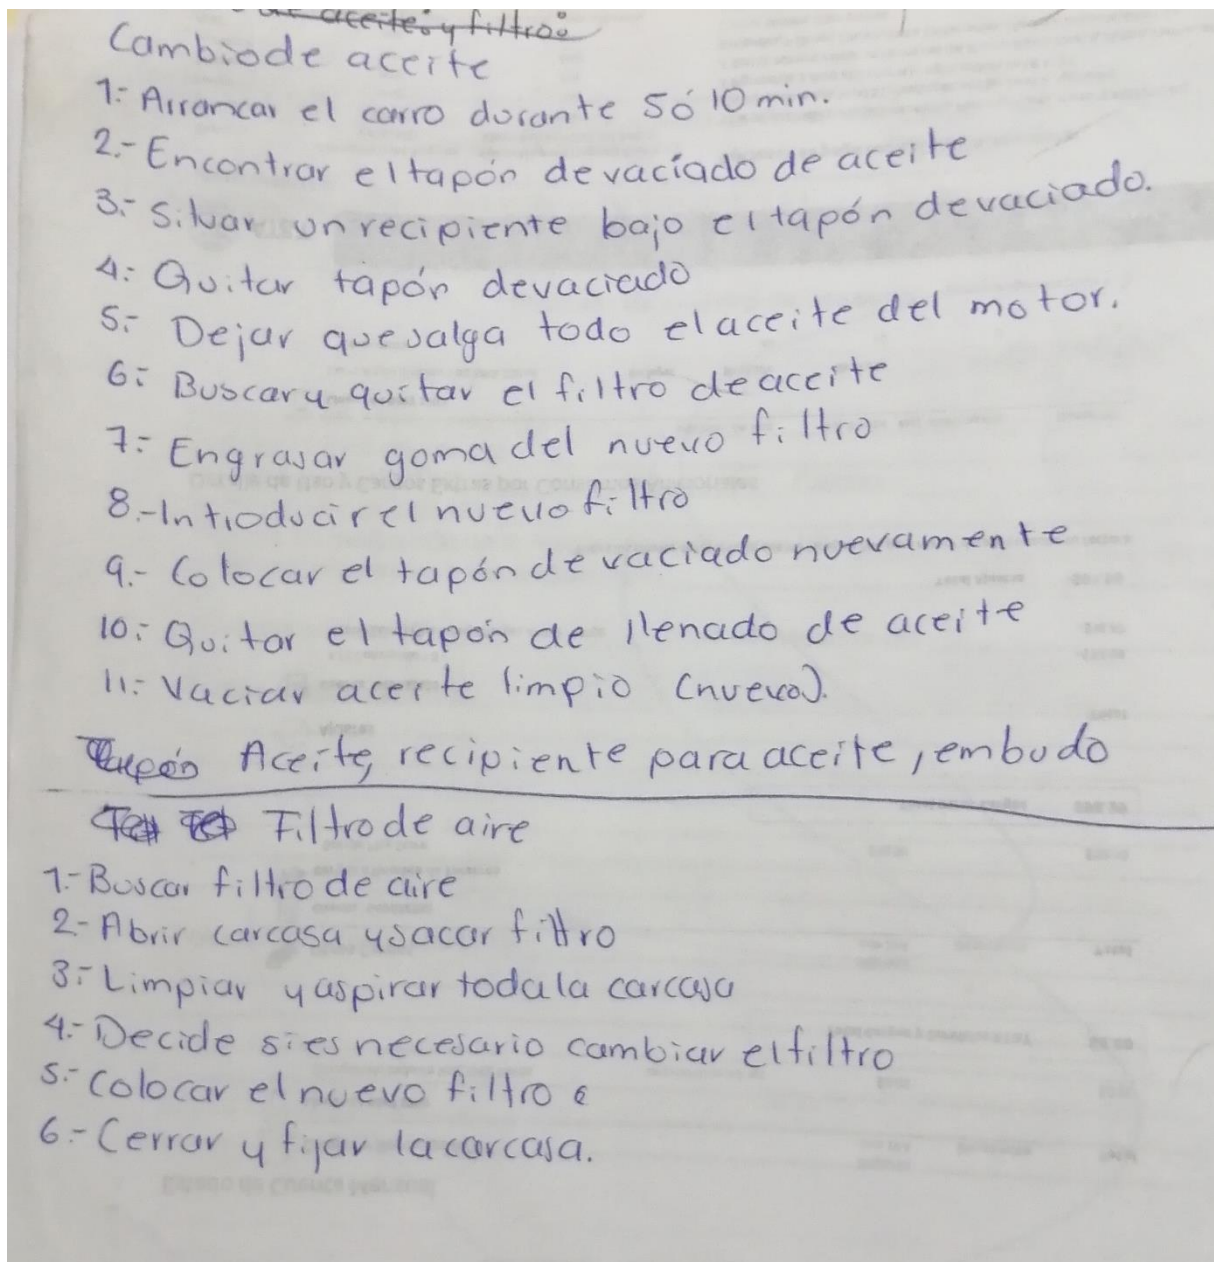 aceite y filtro:
Cambio de aceite
1.- Arrancar el carro durante 5 ó 10 min.
2.- Encontrar el tapón de vacíado de aceite
3.- Situar un recipiente bajo el tapón de vaciado.
4.- Quitar tapón de vaciado
5.- Dejar que salga todo el aceite del motor.
6.- Buscar y quitar el filtro de aceite
7.- Engrasar goma del nuevo filtro
8.- Introducir el nuevo filtro
9.- Colocar el tapón de vaciado nuevamente
10.- Quitar el tapón de llenado de aceite
11.- Vaciar aceite limpio (nuevo).
Tapón Aceite, recipiente para aceite, embudo
Filtro de aire
1.- Buscar filtro de aire
2.- Abrir carcasa y sacar filtro
3.- Limpiar y aspirar toda la carcasa
4.- Decide si es necesario cambiar el filtro
5.- Colocar el nuevo filtro
6.- Cerrar y fijar la carcasa.